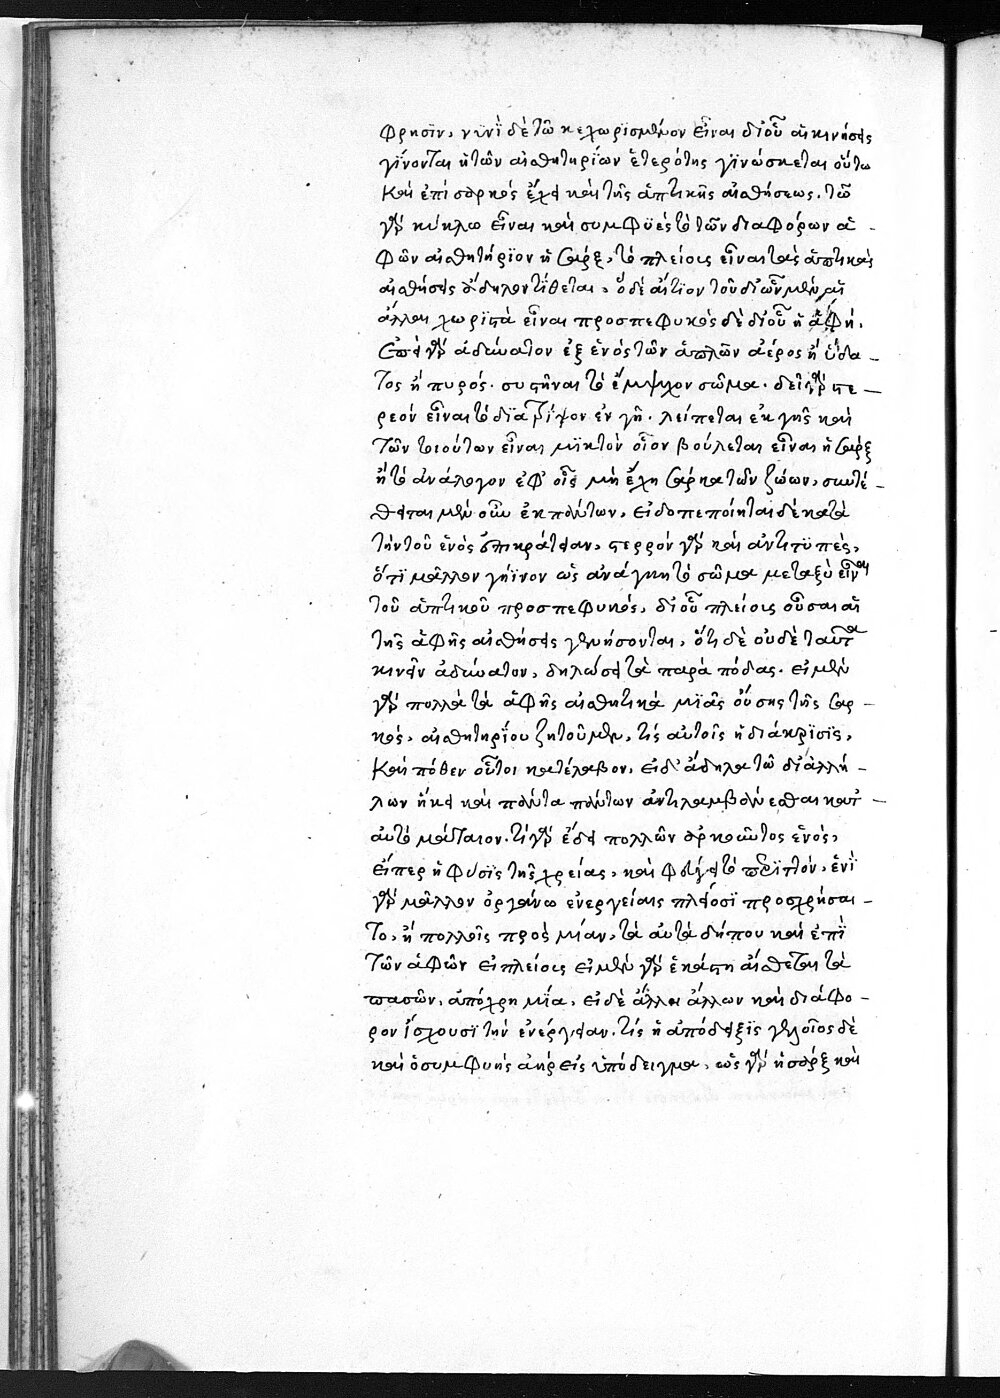 φρησϊν, νϋνῒ δὲ τῶ κεχωρϊσμένον εἶναι δι' οὗ αἱ κινήσεις
γίνονται ἡ τῶν αἰσθητηρίων ἑτερότης γϊνώσκεται οὕτω
καὶ ἐπὶ σαρκὸς ἔχει καὶ τῆς ἁπτικῆς αἰσθήσεως. τῶ
γὰρ κύκλω εἶναι καὶ συμφϋὲς τὸ τῶν διαφόρων ἁ -
φῶν αἰσθητήρϊον ἡ σάρξ, τὸ πλείοις εἶναι τὰς ἁπτικὰς
αἰσθήσεις ἄδηλον τίθεται, ὅδε αἴτϊον τοῦ δι' ὧν μὲν αἱ
ἄλλαι χωρϊστὰ εἶναι προσπεφυκὸς δὲ δι' οὗ ἡ ἁφή.
ἐπεὶ γὰρ ἀδύνατον ἐξ ἑνὸς τῶν ἁπλῶν ἀέρος ἢ ὕδα -
τος ἢ πυρός. συστῆναι τὸ ἔμψυχον σῶμα. δεῖ γὰρ στε -
ρεὸν εἶναι τὸ διατρίψον ἐν γῆ. λείπεται ἐκ γῆς καὶ
τῶν τοιούτων εἶναι μϊκτὸν οἷον βούλεται εἶναι ἡ σὰρξ
ἢ τὸ ἀνάλογον ἐφ' οἷς μὴ ἔχη σάρκα τῶν ζώων, συντέ -
θειται μὲν οὖν ἐκ πάντων, εἰδοπεποίηται δὲ κατὰ
τὴν τοῦ ἑνὸς ἐπικράτειαν, στερρὸν γὰρ καὶ ἀντιτϋπές,
ὅτϊ μᾶλλον γήϊνον ὡς ἀνάγκη τὸ σῶμα μεταξὺ εἶναι
τοῦ ἁπτικοῦ προσπεφυκός, δι' οὗ πλείοις οὖσαι αἱ
τῆς ἁφῆς αἰσθήσεις γενήσονται, ὅτι δὲ οὐδὲ ταῦτα
κινεῖν ἀδύνατον, δηλώσει τὰ παρὰ πόδας. εἰ μὲν
γὰρ πολλὰ τὰ ἁφῆς αἰσθητικὰ μϊᾶς οὔσης τῆς σαρ -
κὸς, αἰσθητηρίου ζητοῦμεν, τίς αὐτοῖς ἡ διάκρϊσϊς,
καὶ πόθεν οὗτοι κατέλαβον, εἰ δ' ἄδηλα τῶ δι' ἀλλή -
λων ἥκει καὶ πάντα πάντων ἀντιλαμβάνεσθαι κατ' -
αὐτὸ μάταιον. τί γὰρ ἔδει πολλῶν ἀρκοῦντος ἑνός,
εἴπερ ἡ φύσϊς τῆς χρείας, καὶ φεύγει τὸ περϊττόν, ἑνῒ
γὰρ μᾶλλον ὀργάνω ἐνεργείαις πλείοσϊ προσχρήσαι -
το, ἢ πολλοῖς πρὸς μίαν, τὰ αὐτὰ δήπου καὶ ἐπῒ
τῶν ἁφῶν εἰ πλείοις εἰ μὲν γὰρ ἑκάστη αἰσθεται τὰ
πασῶν, ἀπόχρη μϊα, εἰ δὲ ἄλλαι ἄλλων καὶ διάφο -
ρον ἴσχουσϊ τὴν ἐνέργειαν. τίς ἡ ἀπόδειξϊς γελοῖος δὲ
καὶ ὁ συμφυὴς ἀὴρ εἰς ὑπόδειγμα, ὡς γὰρ ἡ σὰρξ καὶ